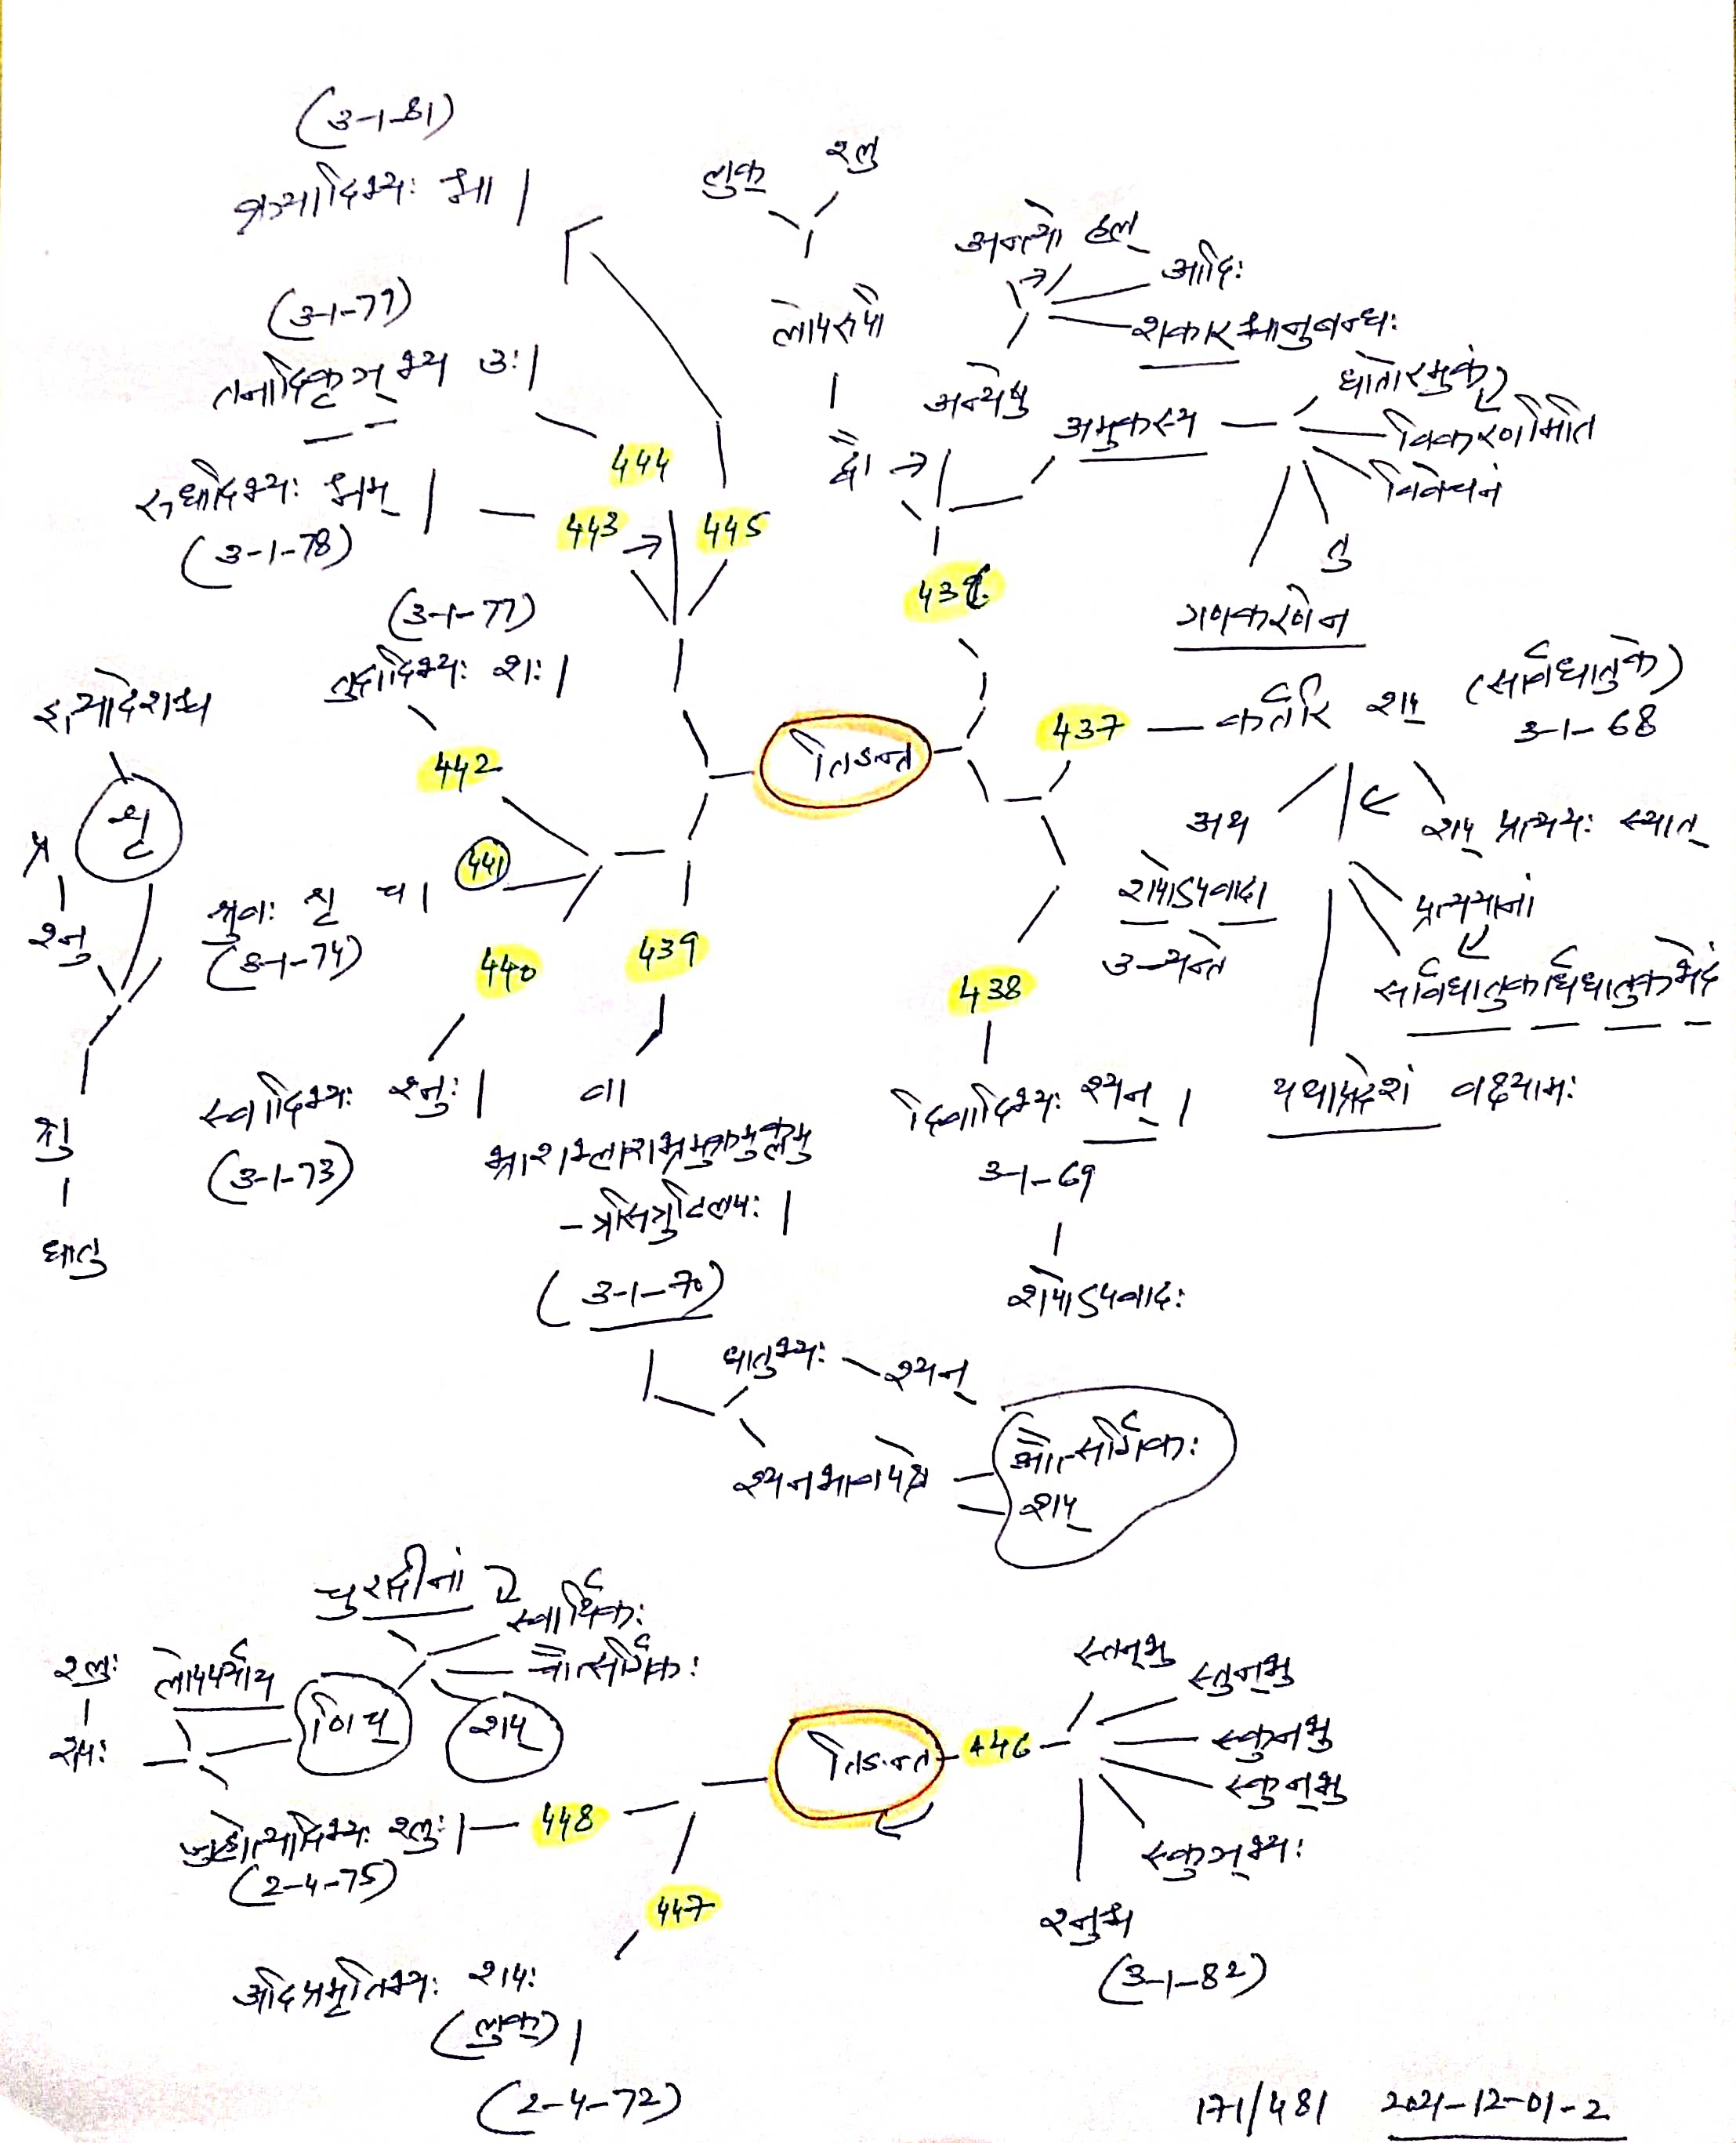 (3-1-81)
क्र्यादिभ्यः श्ना |
लुक्
श्लु
लोपरूपौ
द्वौ
अन्त्यो हल्
आदिः
शकारश्चानुबन्धः
अन्येषु
अमुकस्य
धातोरमुकं
विकरणमिति
विवेचनं
तु
गणकरणेन
436
(3-1-79)
तनादिकृञ्भ्य उः |
444
रुधादिभ्यः श्नम् |
(3-1-78)
443
445
(3-1-77)
तुदादिभ्यः शः |
442
तिङन्त
437
कर्तरि शप्
(सार्वधातुके)
3-1-68
अथ
शपोऽपवादा
उच्यन्ते
शप् प्रत्ययः स्यात्
प्रत्ययानां
सार्वधातुकार्धधातुकभेदं
यथाप्रदेशं वक्ष्यामः
इत्यादेशश्च
शृ
प्र
श्नु
श्रु
धातु
441
श्रुवः शृ च |
(3-1-74)
440
स्वादिभ्यः श्नुः |
(3-1-73)
439
वा
भ्राशभ्लाशभ्रमुक्रमुक्लमु
-त्रसित्रुटिलषः |
(3-1-70)
438
दिवादिभ्यः श्यन् |
3-1-69
शपोऽपवादः
धातुभ्यः
श्यन्
श्यनभावपक्षे
औत्सर्गिकः
शप्
चुरादीनां
स्वार्थिकः
औत्सर्गिकः
णिच्
शप्
श्लुः
लोपपर्याय
शपः
जुहोत्यादिभ्यः श्लुः |
(2-4-75)
448
तिङन्त
446
स्तन्भु
स्तुन्भु
स्कन्भु
स्कुन्भु
स्कुञ्भ्यः
श्नुश्च
(3-1-82)
447
अदिप्रभृतिभ्यः शपः
(लुक्) |
(2-4-72)
171/481 2021-12-01-2